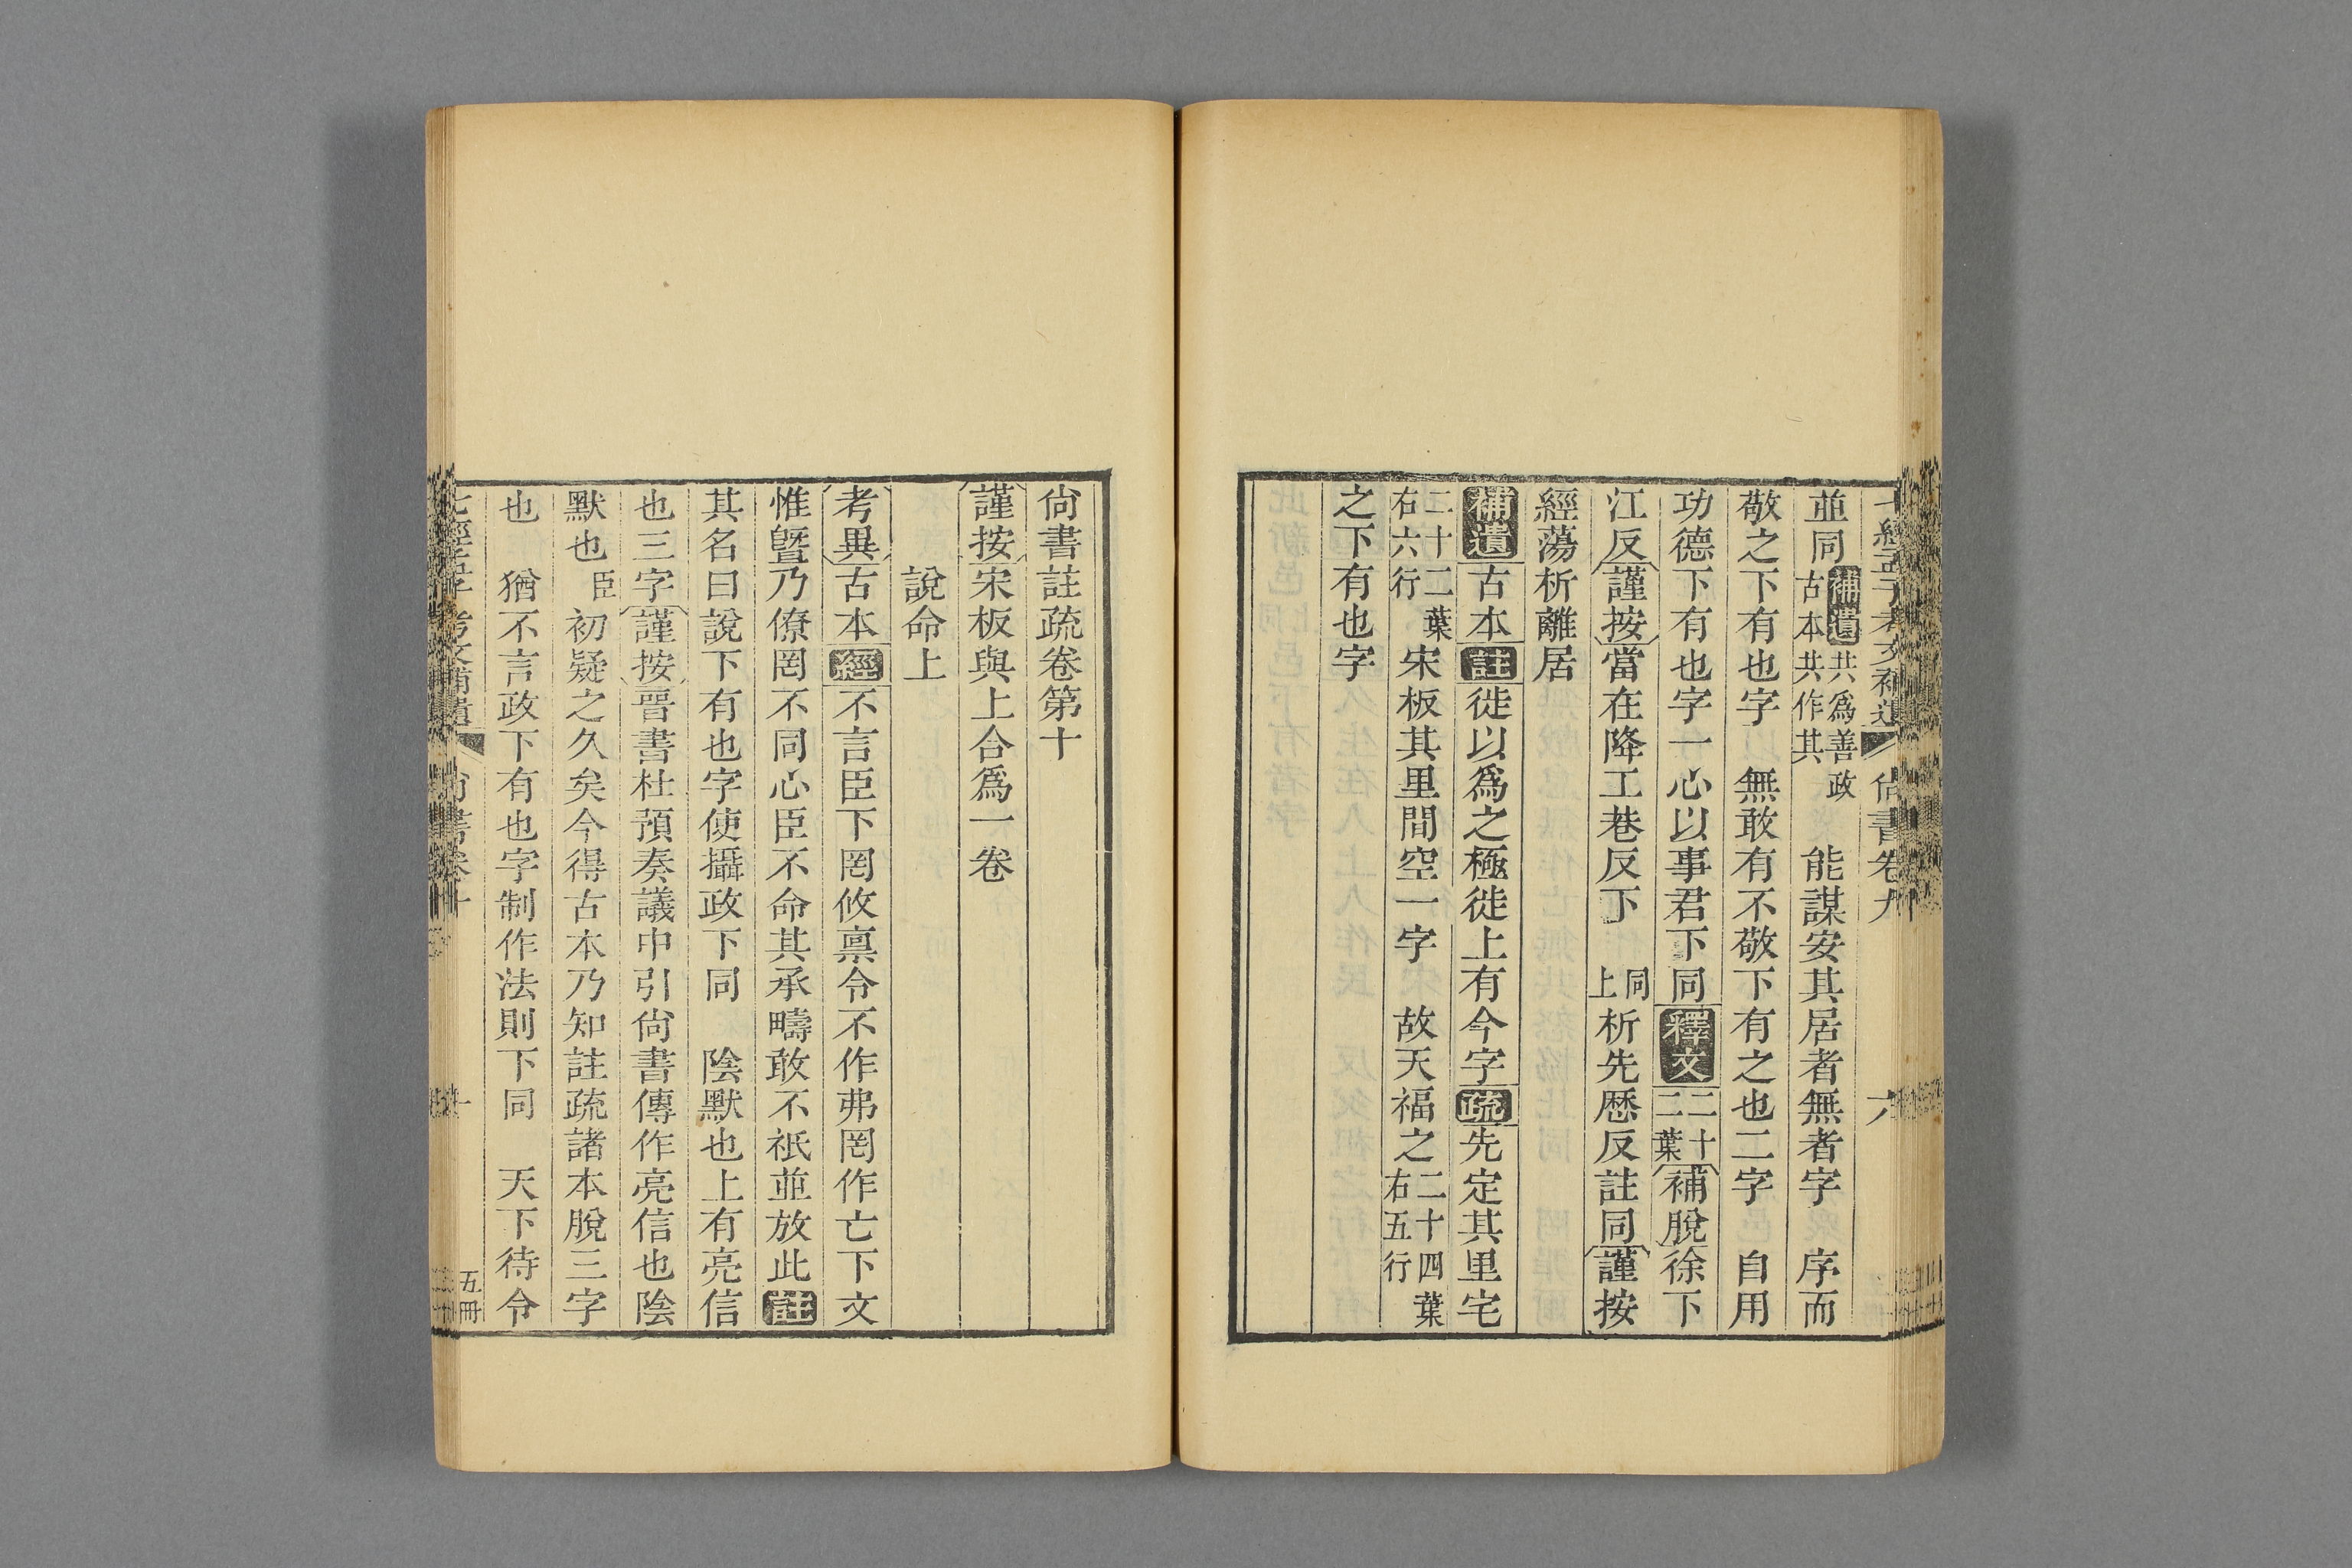 七經孟子考文補遺 尙書卷九 六
並同補遺共爲善政古本共作其 能謀安其居者無者字 序而
敬之下有也字 無敢有不敬下有之也二字 自用
功德下有也字一心以事君下同釋文二十二葉補脫徐下
江反謹按當在降工巷反下 同上析先歷反註同謹按
經蕩析離居
補遺古本註徙以爲之極徙上有今字疏先定其里宅
二十二葉右六行宋板其里間空一字 故天福之二十四葉右五行
之下有也字
尙書註疏卷第十
謹按宋板與上合爲一卷
說命上
考異古本經不言臣下罔攸稟令不作弗罔作亡下文
惟曁乃僚罔不同心臣不命其承疇敢不祇並放此註
其名曰說下有也字使攝政下同 陰默也上有亮信
也三字謹按晉書杜預奏議中引尙書傳作亮信也陰
默也臣初疑之久矣今得古本乃知註疏諸本脫三字
也 猶不言政下有也字制作法則下同 天下待令
七經孟子考文補遺 尙書卷十 一 五冊